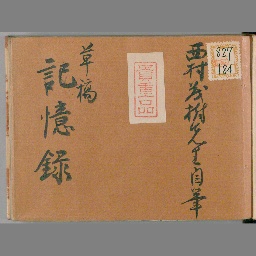 西村茂樹先生自筆
貴重品
草稿
記憶録
827
184